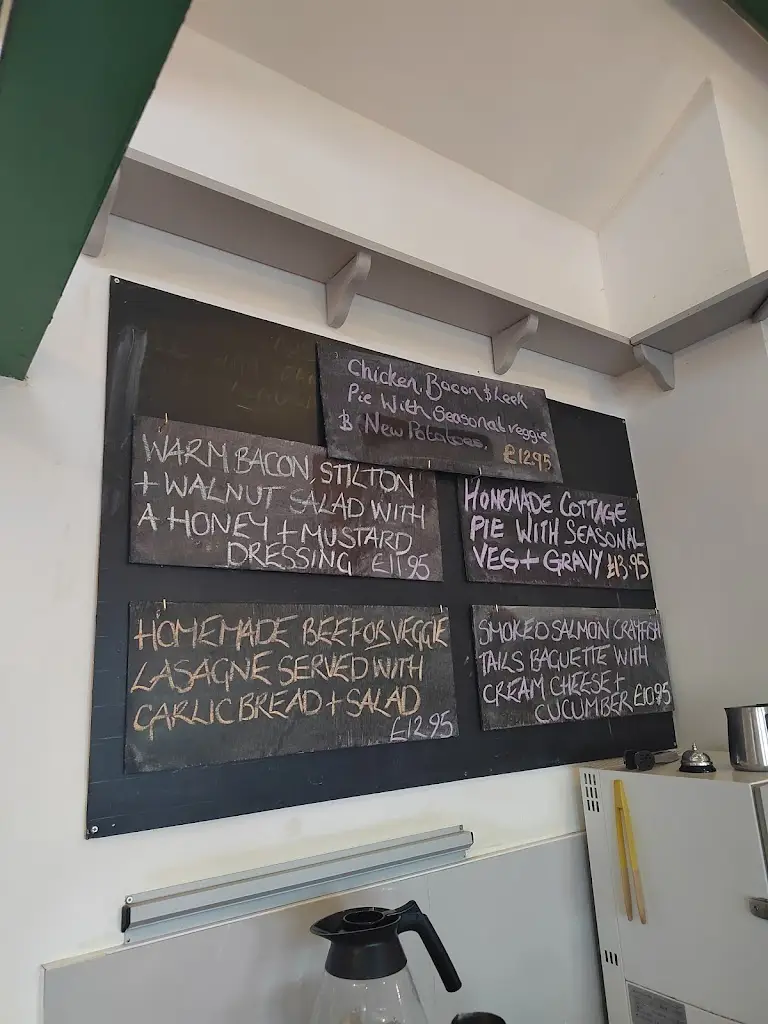 Chicken, Bacon & Leek
Pie With Seasonal veggie
& New Potatoes.
£12.95
WARM BACON, STILTON
+ WALNUT SALAD WITH
A HONEY + MUSTARD
DRESSING £11.95
HOMEMADE COTTAGE
PIE WITH SEASONAL
VEG + GRAVY £13.95
HOMEMADE BEEF OR VEGGIE
LASAGNE SERVED WITH
GARLIC BREAD + SALAD
£12.95
SMOKED SALMON CRAYFISH
TAILS BAGUETTE WITH
CREAM CHEESE +
CUCUMBER £10.95